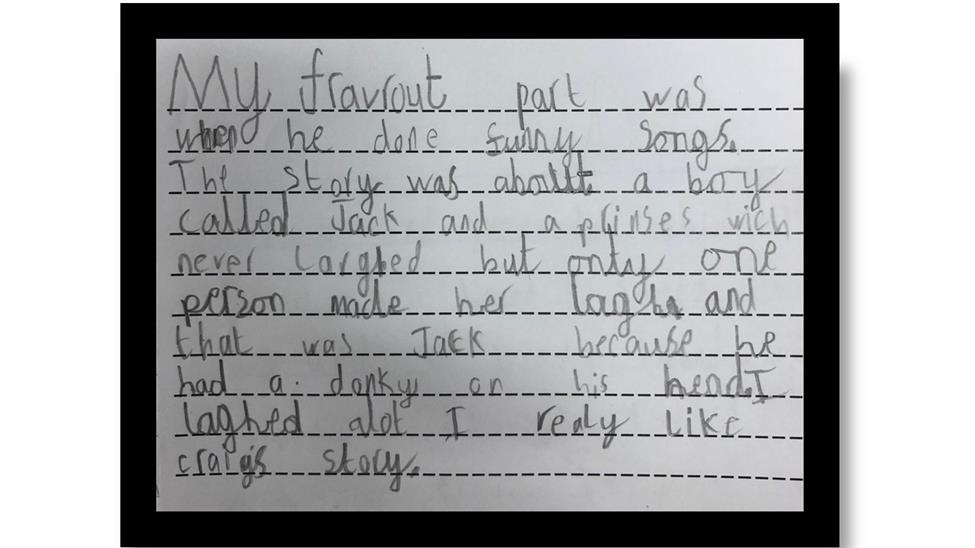 My fravrout part was
when he done funny songs.
The story was about a boy
called Jack and a prinses wich
never larghed but only one
person made her lagh and
that was Jack because he
had a donky on his head. I
laghed alot I realy like
craigs story.